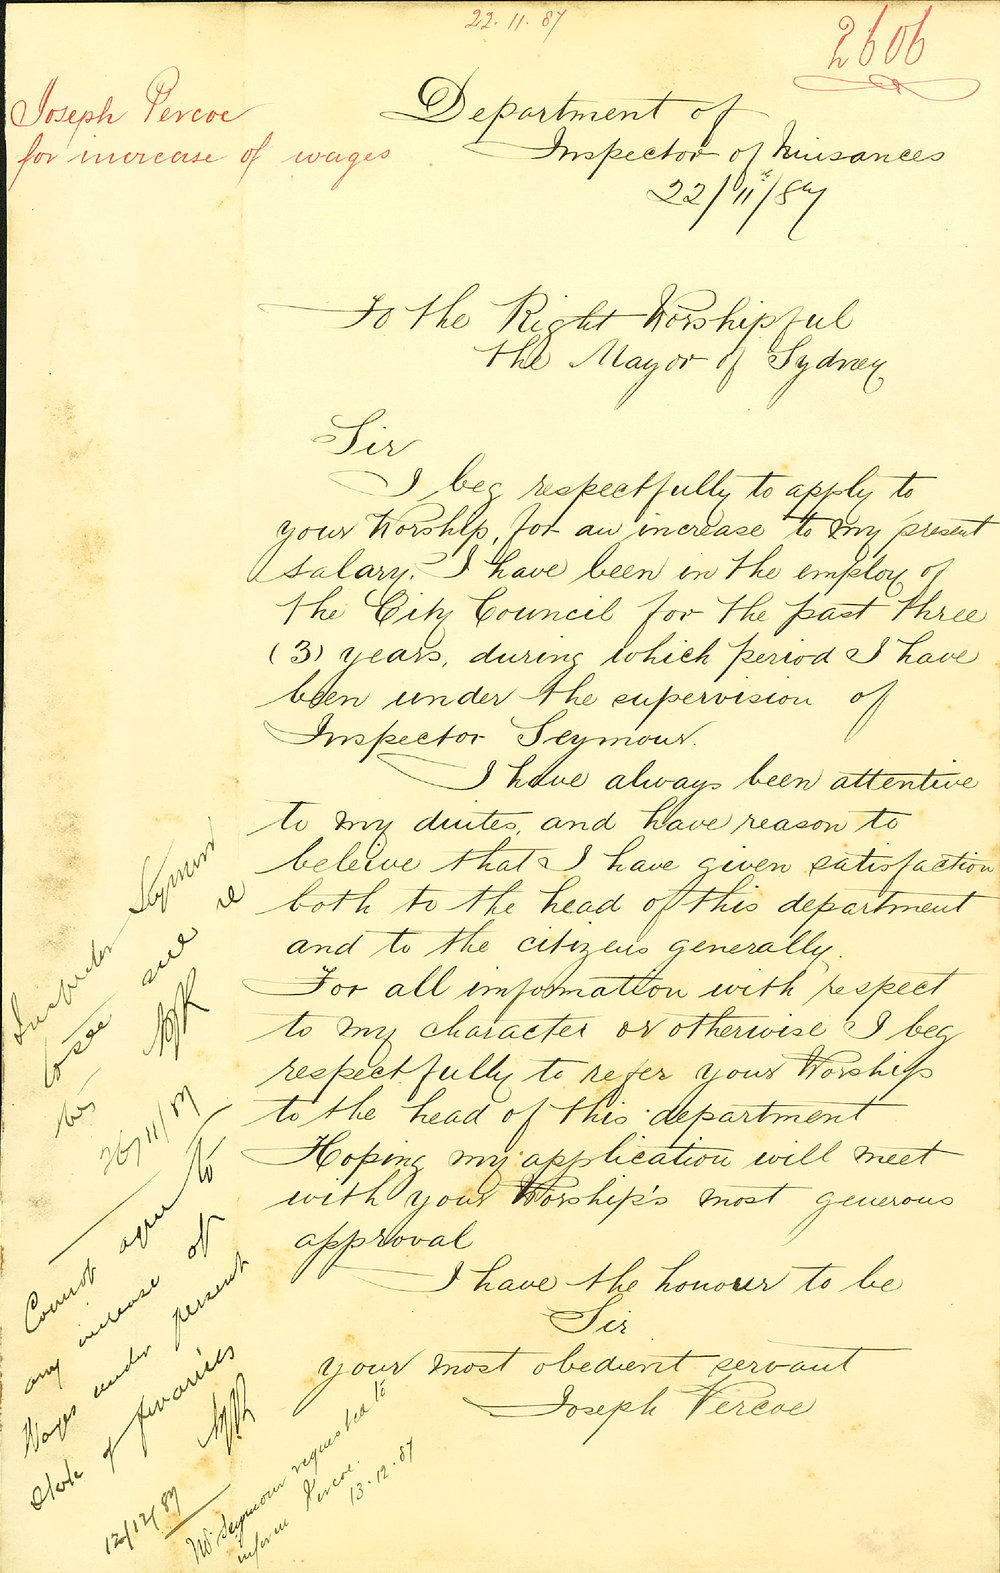 22.11.87
2606
Joseph Percoe
for increase of wages
Department of
Inspector of Nuisances
22/11th/87
To the Right Worshipful
the Mayor of Sydney
Sir
I beg respectfully to apply to
your Worship, for an increase to my present
salary. I have been in the employ of
the City Council for the past three
(3) years, during which period I have
been under the supervision of
Inspector Seymour.
I have always been attentive
to my duites, and have reason to
beleive that I have given satisfaction
both to the head of this department
and to the citizens generally.
For all infomation with respect
to my character or otherwise I beg
respectfully to refer your Worship
to the head of this department
Hoping my application will meet
with your Worship's most generous
approval
I have the honour to be
Sir
your most obedient servant
Joseph Percoe
Inspector Seymour
see me
this
26/11/87
Cannot agree to
any increase of
Wages under present
state of finances
12/12/87
Mr Seymour requested to
inform Percoe.
13.12.87